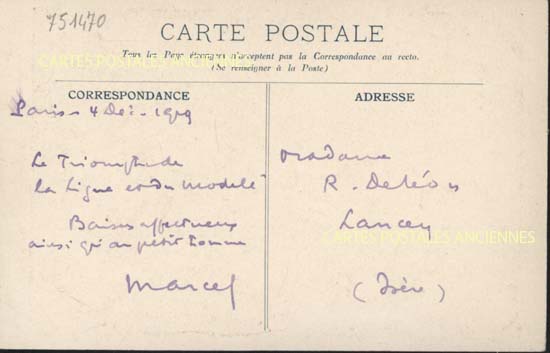 751470
CARTE POSTALE
Tous les Pays étrangers n'acceptent pas la Correspondance au recto.
(Se renseigner à la Poste)
CARTES POSTALES ANCIENNES
CORRESPONDANCE
ADRESSE
Paris 4 Déc. 1919
Le Triomphe de
la Ligne et du modelé
Baisers affectueux
ainsi qu'au petit homme
Marcel
Madame
R. Deléon
Lancey
CARTES POSTALES ANCIENNES
(Isère)